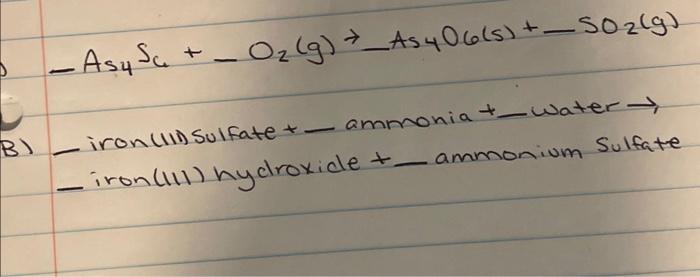 ) _ As4S6 + _ O2(g) → _ As4O6(s) + _ SO2(g)
B) _ iron(III) sulfate + _ ammonia + _ water →
_ iron(III) hydroxide + _ ammonium Sulfate